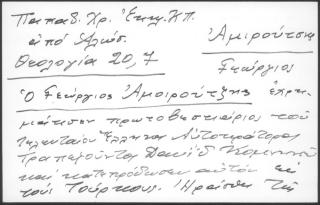 Παπαδ. Χρ. Ἐκκλ. Κ.Π.
ἀπό Ἁλώσ.
Θεολογία 20, 7
Ἀμιρούτσης
Γεώργιος
Ὁ Γεώργιος Ἀμοιρούτζης ἐχρη-
μάτισεν πρωτοβεστιάριος τοῦ
τελευταίου Ἕλληνος Αὐτοκράτορος
Τραπεζοῦντος Δαυίδ Κομνηνοῦ
καί κατεπρόδωσεν αὐτόν εἰς
τούς Τούρκους. Ἡράσθη τῆς